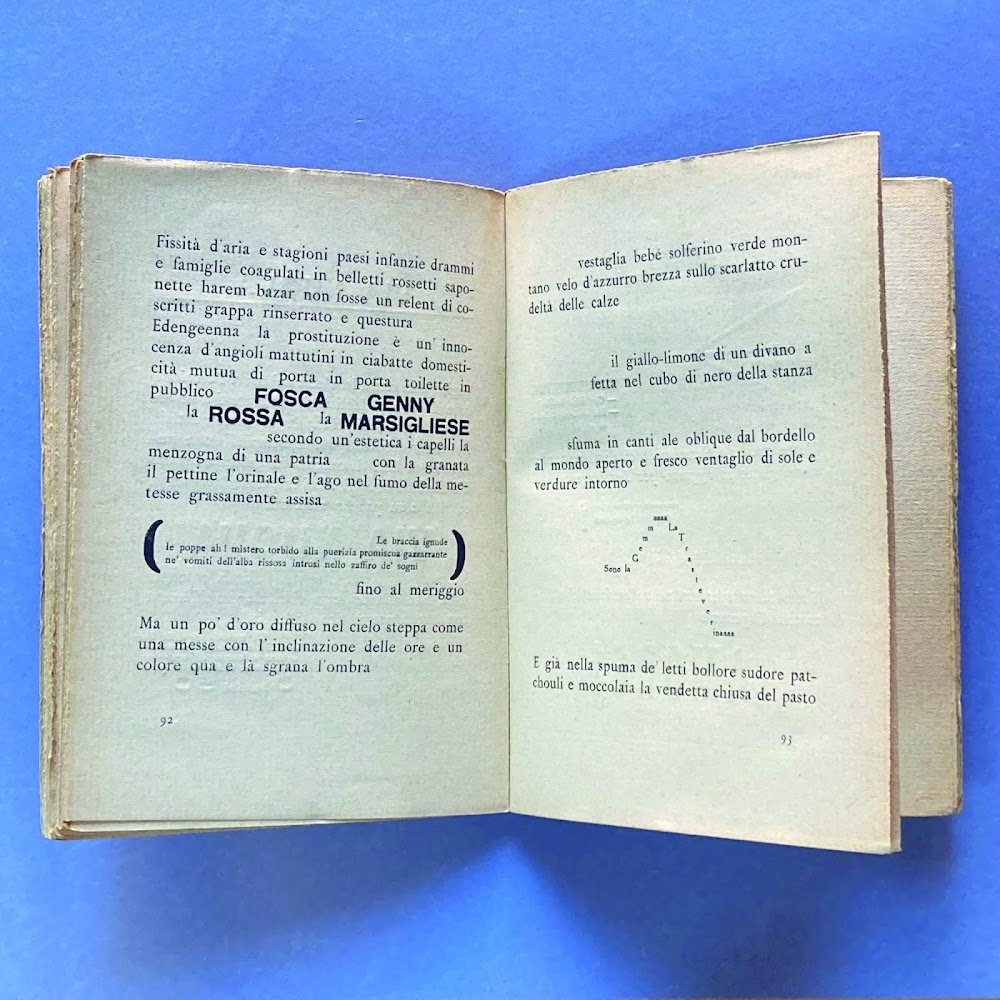 Fissità d'aria e stagioni paesi infanzie drammi
e famiglie coagulati in belletti rossetti sapo-
nette harem bazar non fosse un relent di co-
scritti grappa rinserrato e questura
Edengeenna la prostituzione è un'inno-
cenza d'angioli mattutini in ciabatte domesti-
cità mutua di porta in porta toilette in
pubblico FOSCA GENNY
la ROSSA la MARSIGLIESE
secondo un'estetica i capelli la
menzogna di una patria con la granata
il pettine l'orinale e l'ago nel fumo della me-
tesse grassamente assisa
( Le braccia ignude
le poppe ah! mistero torbido alla puerizia promiscua gazzarrante
ne' vomiti dell'alba rissosa intrusi nello zaffiro de' sogni )
fino al meriggio
Ma un po' d'oro diffuso nel cielo steppa come
una messe con l'inclinazione delle ore e un
colore qua e là sgrana l'ombra
92
vestaglia bebé solferino verde mon-
tano velo d'azzurro brezza sullo scarlatto cru-
deltà delle calze
il giallo-limone di un divano a
fetta nel cubo di nero della stanza
sfuma in canti ale oblique dal bordello
al mondo aperto e fresco ventaglio di sole e
verdure intorno
Sono la Gemmaaaaa La Trasteverinaaaa
E già nella spuma de' letti bollore sudore pat-
chouli e moccolaia la vendetta chiusa del pasto
93